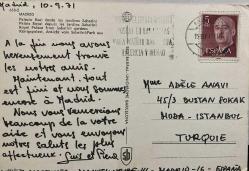 Madrid, 10.9.71
MADRID
Palacio Real desde los jardines Sabatini
Palais Royal depuis les jardins Sabatini
Königspalast, Ansicht vom Sabatini-Park aus
A la fin nous avons
heureusement trouvé
les notres amis.
Maintenant, tout
est fini et nous sommes
encore à Madrid.
Nous vous remercions
beaucoup de la votre
aide et vous envoyons
notres saluts les plus
affectueux.
5
ESPAÑA
Mme ADÈLE ANAVI
45/3 BUSTAN SOKAK
MODA-ISTANBUL
TURQUIE
MADRID-16-ESPAÑA